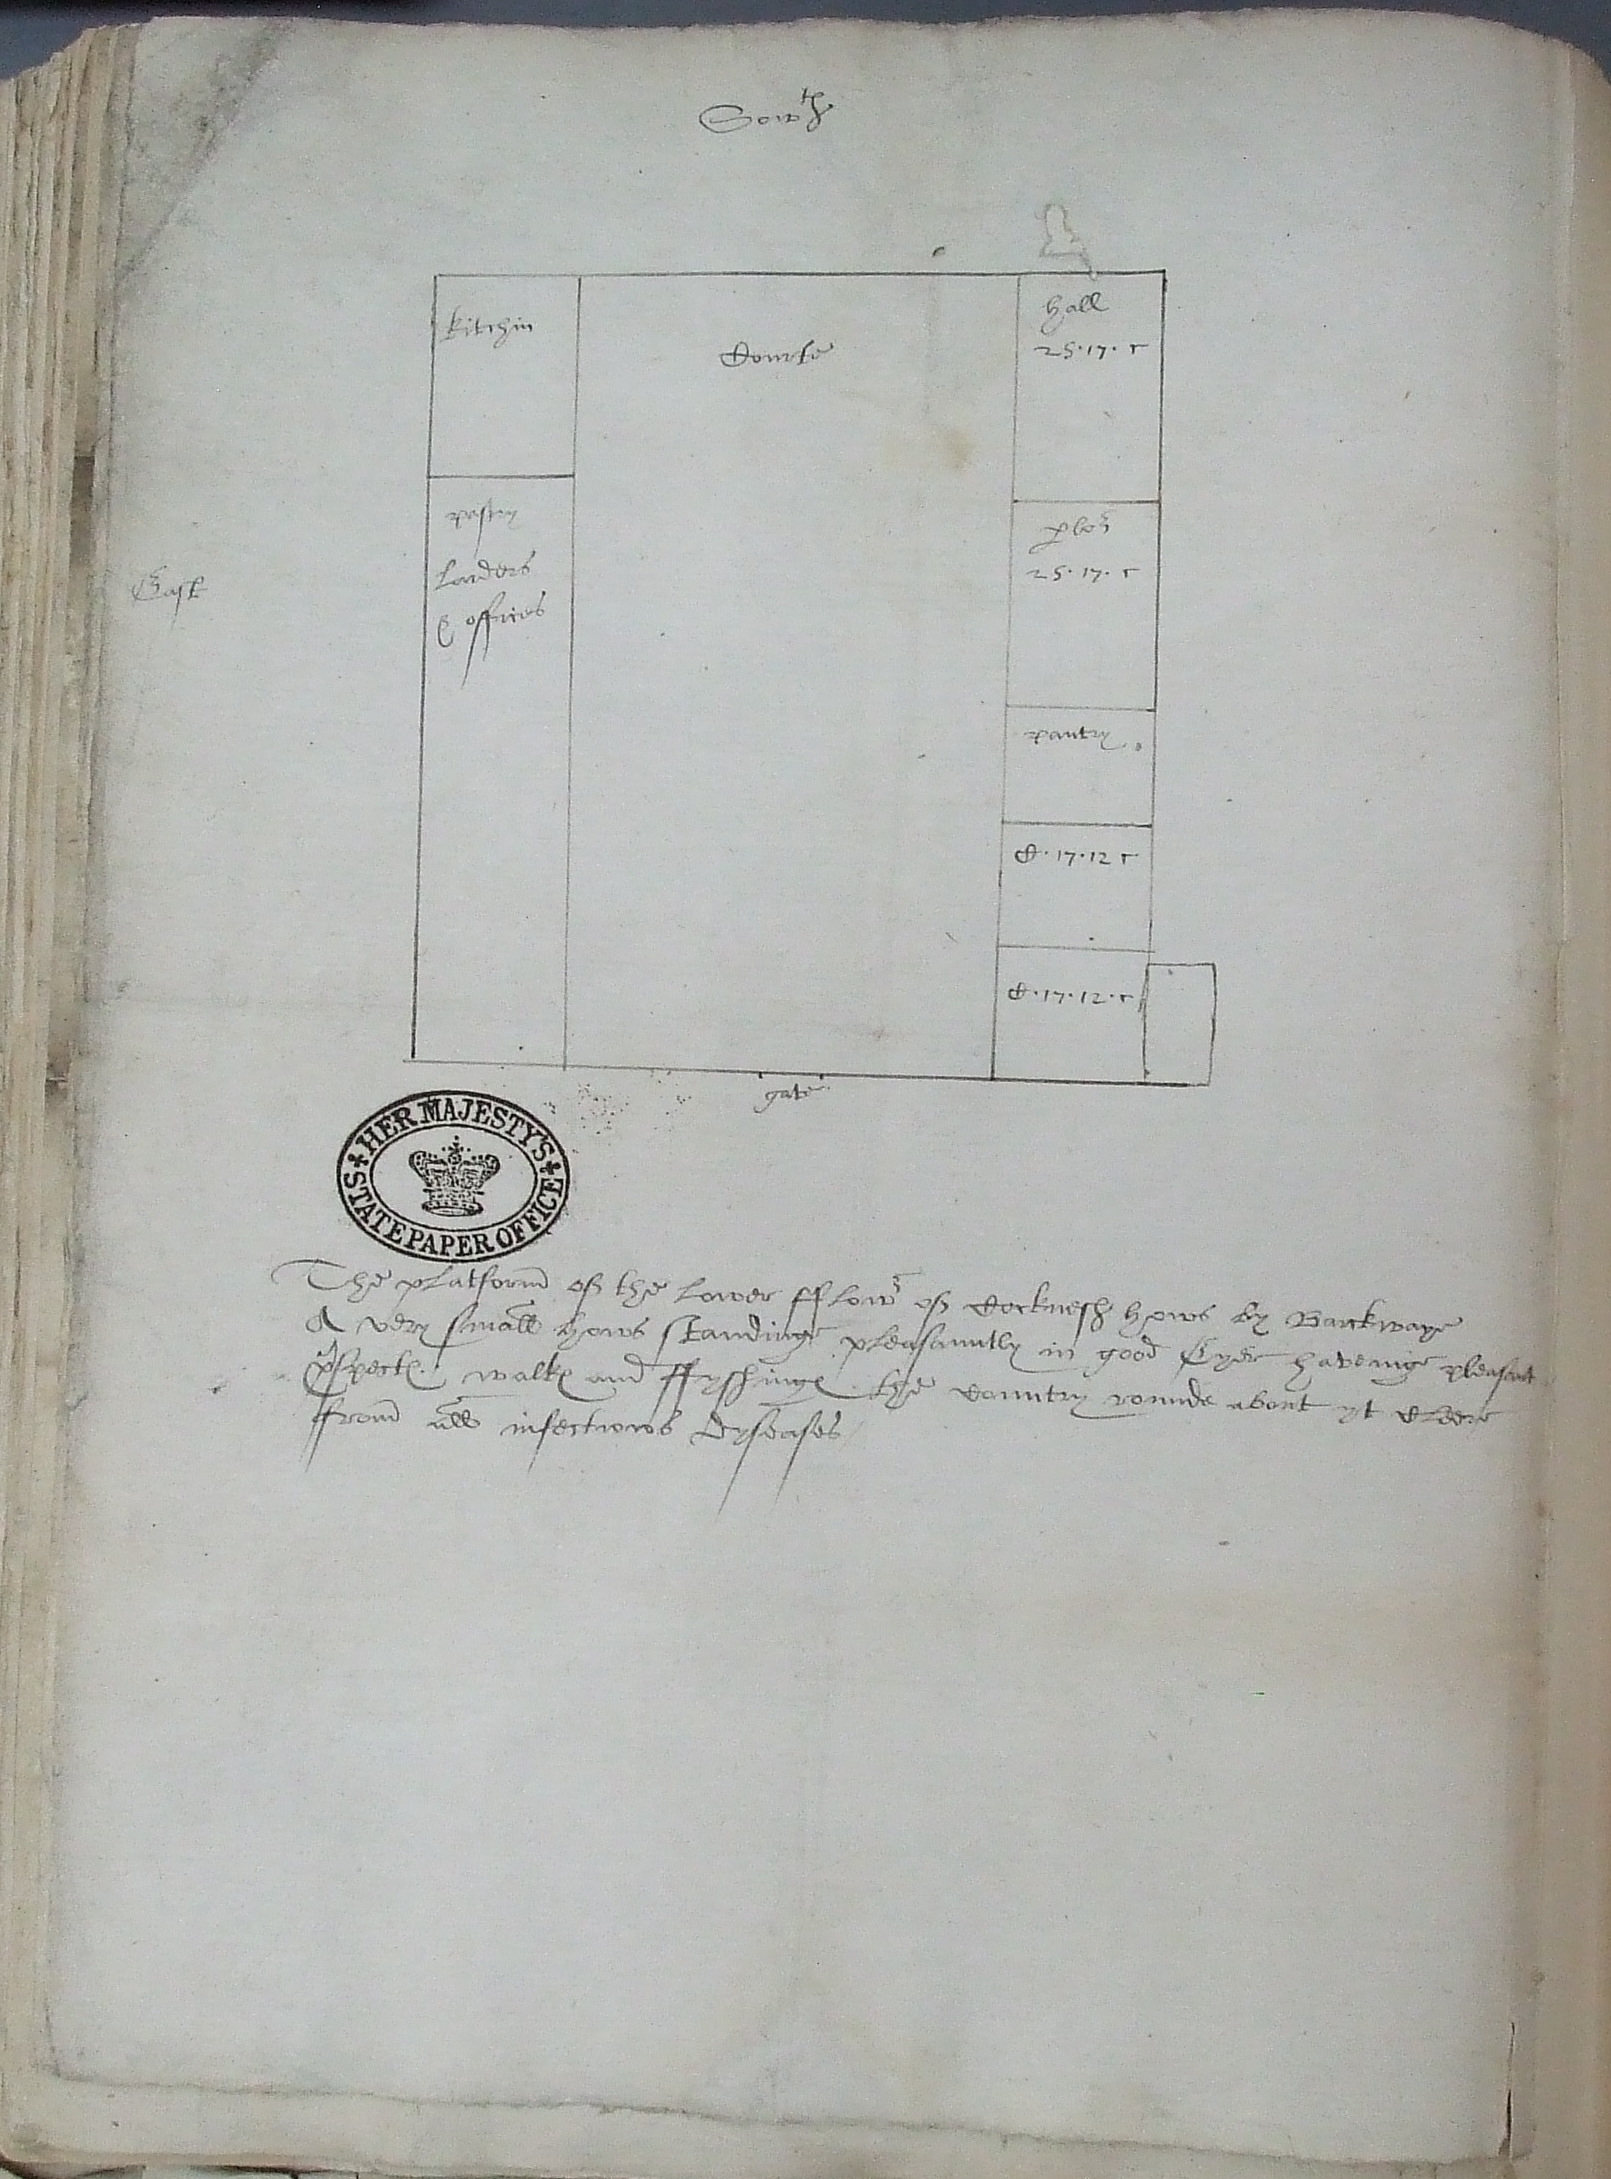 Sowth
kitchin
Courte
hall
25·17· r
pastry
Larders
& offices
East
p̱lo͠r
25·17· r
pantry
C·17·12 r
C·17·12·r
gate
HER MAJESTY'S
STATE PAPER OFFICE
The platform of the lower fflowr of hows by Barckwaye
A very small hows standinge pleasauntly in good Eyer havenige pleasant
p̱spects walks and ffysshings the Country rounde about yt Cleere
from all infectiows dyseases